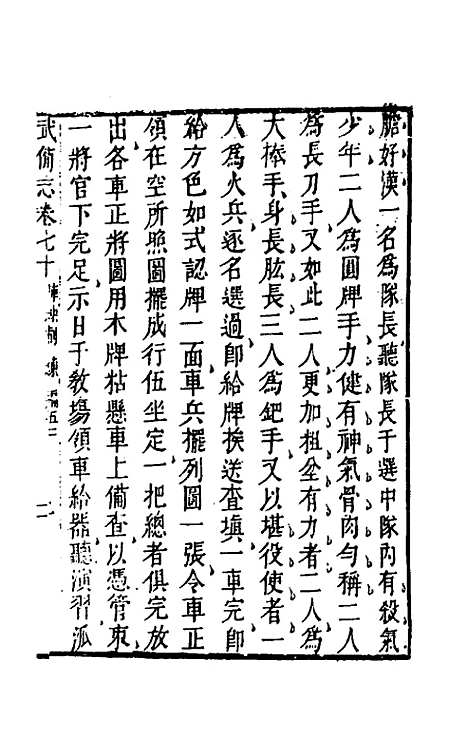 膽好漢一名為隊長聽隊長于選中隊內有殺氣
少年二人為圓牌手力健有神氣骨肉勻稱二人
為長刀手又如此二人更加粗全有力者二人為
大棒手身長肱長三人為鈀手又以堪役使者一
人為火兵逐名選過即給牌挨送查填一車完即
給方色如式認牌一面車兵擺列圖一張令車正
領在空所照圖擺成行伍坐定一把總者俱完放
出各車正將圖用木牌粘懸車上備查以憑管束
一將官下完足示日于教場領車給器聽演習派
武備志卷七十 陣練制 練 二